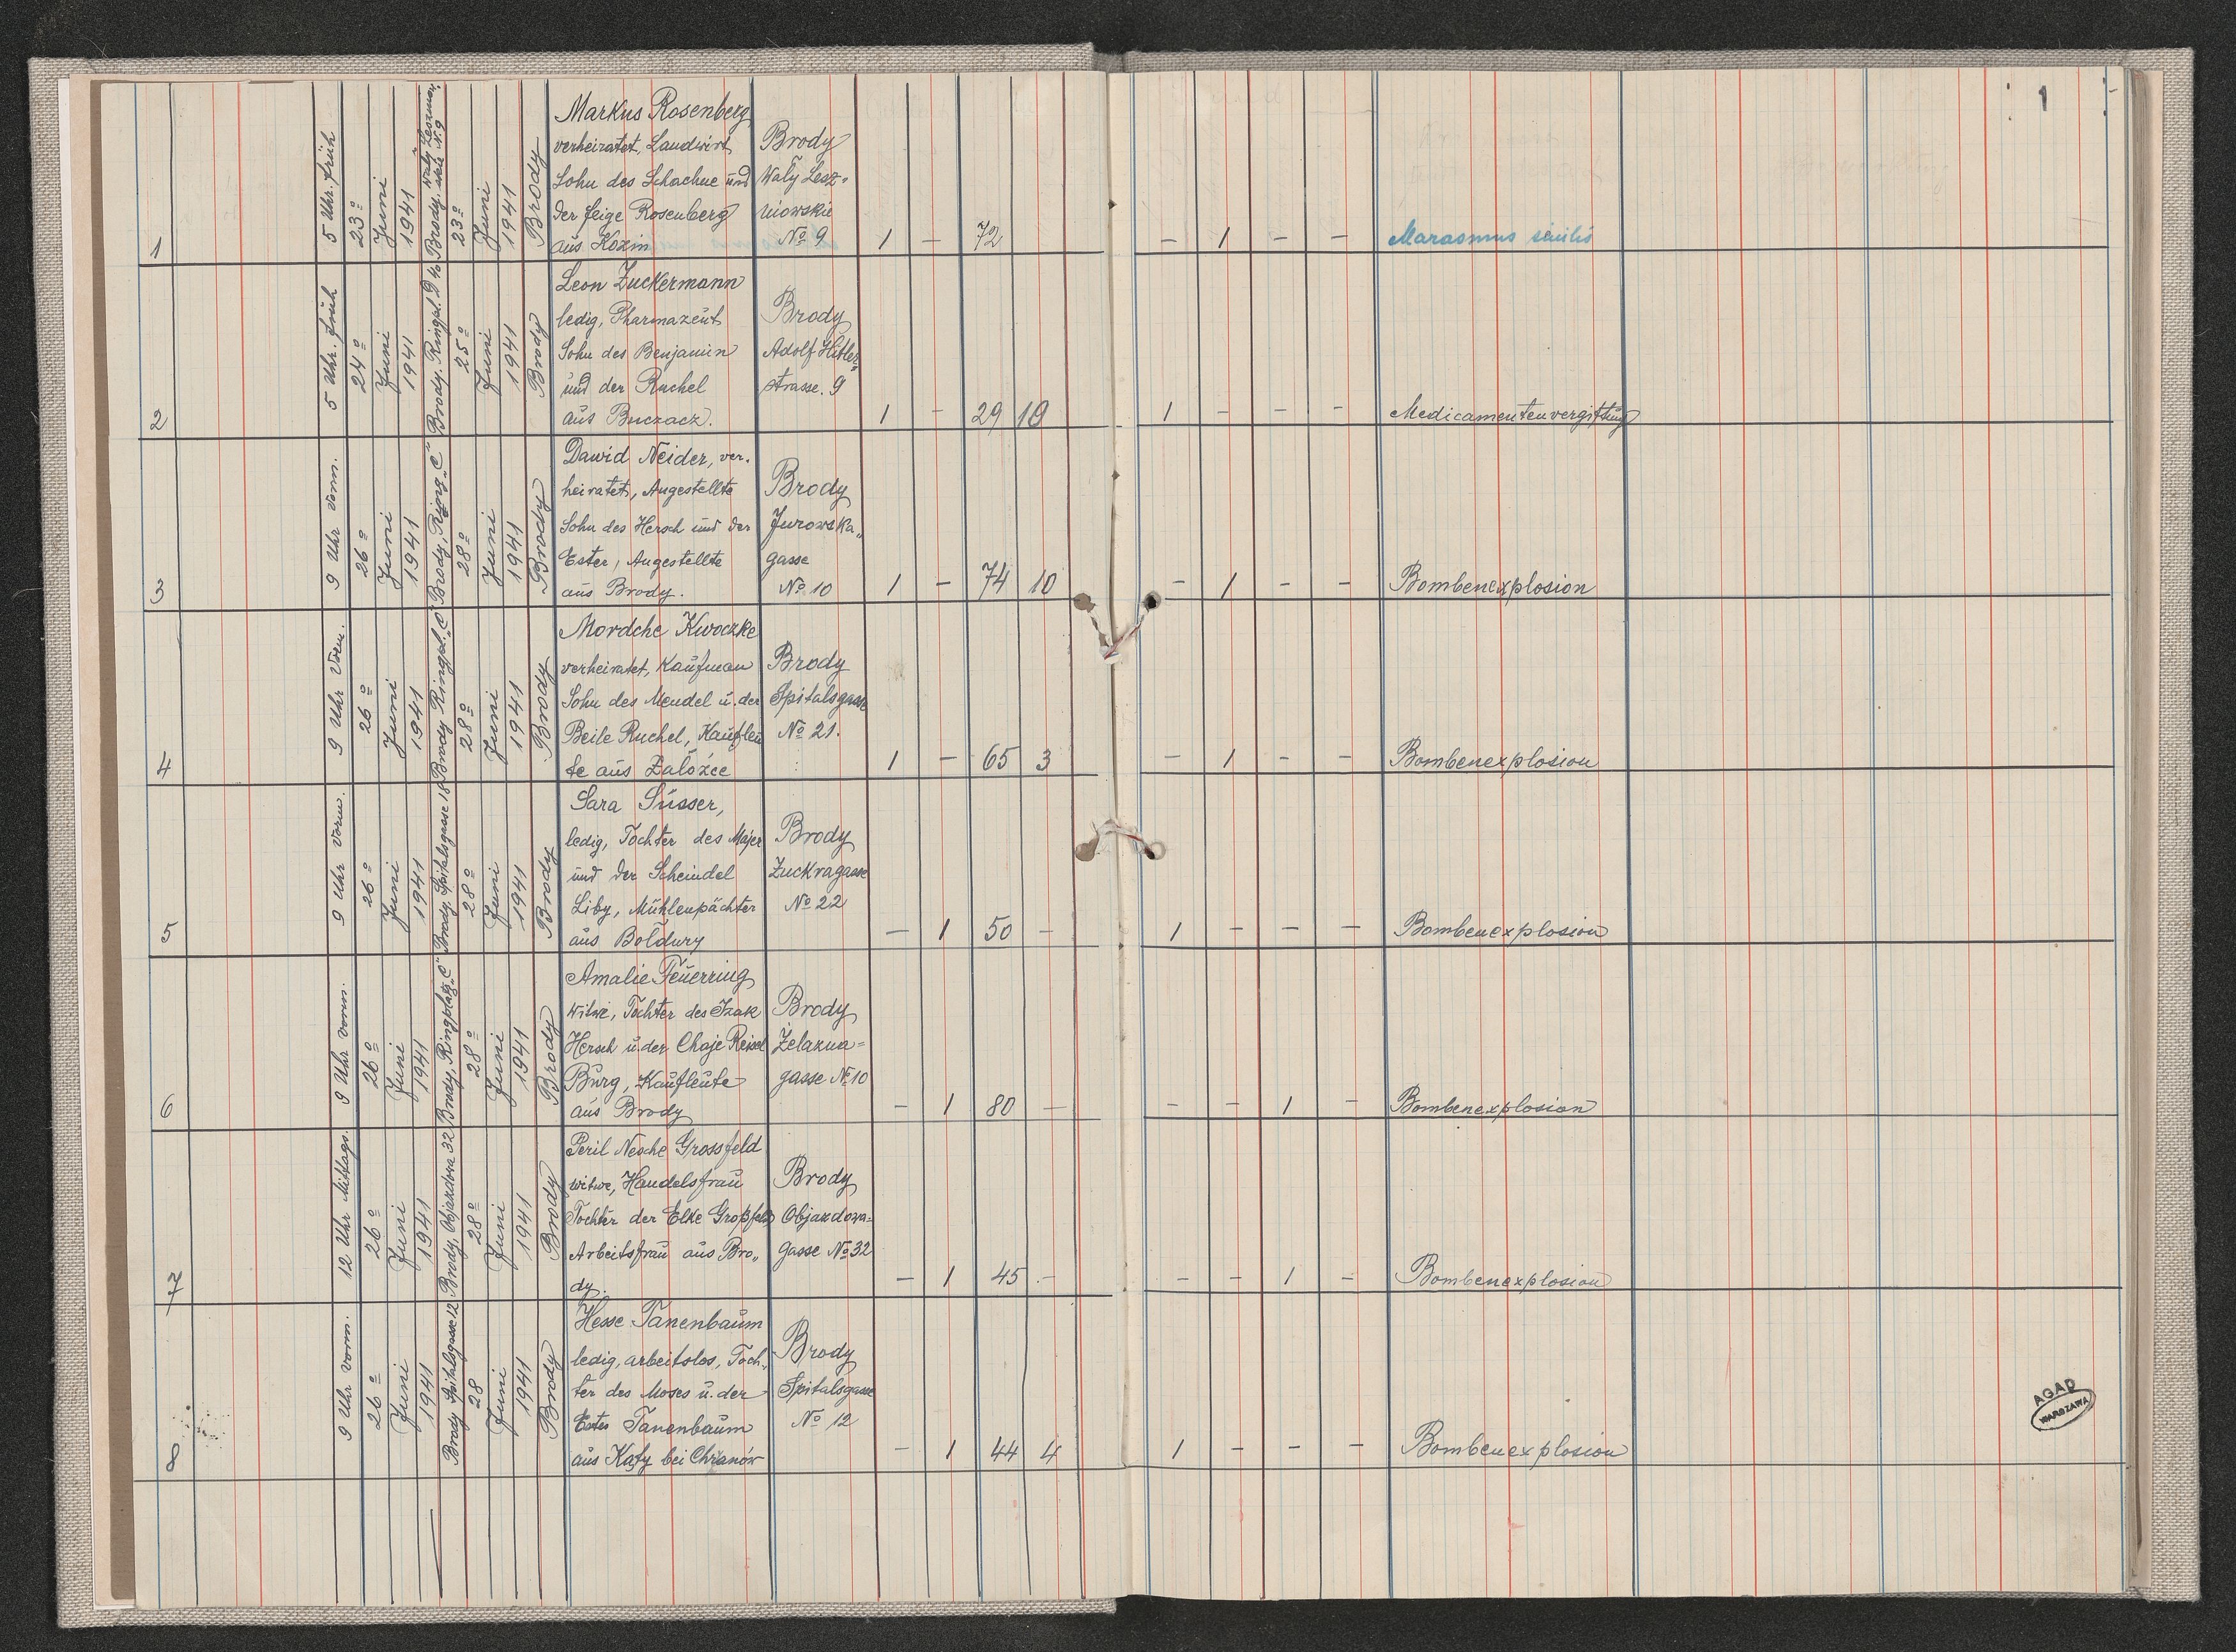 1
1
5 Uhr. früh
23º
Juni
1941
Brody. Wały Leszniow
skie № 9
23º
Juni
1941
Brody
Markus Rosenberg
verheiratet, Landwirt
Sohn des Schachne und
der Feige Rosenberg
aus Kozin
Brody
Wały Lesz-
niowskie
№ 9
1 — 72
— 1 — — Marasmus senilis
2
5 Uhr. früh
24º
Juni
1941
Brody. Ringpl. D 40
25º
Juni
1941
Brody
Leon Zuckermann
ledig, Pharmazeut
Sohn des Benjamin
und der Ruchel
aus Buczacz.
Brody
Adolf Hitler-
strasse. 9
1 — 29 10
1 — — — Medicamentenvergiftung
3
9 Uhr vorm.
26º
Juni
1941
Brody, Ring „C"
28º
Juni
1941
Brody
Dawid Neider, ver.
heiratet, Angestellte
Sohn des Hersch und der
Ester, Angestellte
aus Brody.
Brody
Jurowska„
gasse
№ 10
1 — 74 10
— 1 — — Bombenexplosion
4
9 Uhr Vorm.
26º
Juni
1941
Brody Ringpl. „C"
28º
Juni
1941
Brody
Mordche Kwoczke
verheiratet, Kaufman
Sohn des Mendel u. der
Beile Ruchel, Kaufleu
te aus Założce
Brody
Spitalsgasse
№ 21.
1 — 65 3
— 1 — — Bombenexplosion
5
9 Uhr Vorm.
26º
Juni
1941
Brody, Spitalsgasse 18
28º
Juni
1941
Brody
Sara Süsser,
ledig, Tochter des Majer
und der Scheindel
Liby, Mühlenpächter
aus Bołdury
Brody
Zuckragasse
№ 22
— 1 50 —
1 — — — Bombenexplosion
6
9 Uhr vorm.
26º
Juni
1941
Brody, Ringplatz „C"
28º
Juni
1941
Brody
Amalie Feuerring
witwe, Tochter des Izak
Hersch u. der Chaje Reisel
Burg, Kaufleute
aus Brody
Brody
Żelazna=
gasse № 10
— 1 80 —
— — 1 — Bombenexplosion
7
12 Uhr Mittags.
26º
Juni
1941
Brody, Objazdowa 32
28º
Juni
1941
Brody
Peril Nesche Grossfeld
witwe, Handelsfrau
Tochter der Elke Großfeld
Arbeitsfrau aus Bro„
dy.
Brody
Objazdowa=
gasse № 32
— 1 45 —
— — 1 — Bombenexplosion
8
9 Uhr vorm.
26º
Juni
1941
Brody Spitalsgasse 12
28
Juni
1941
Brody
Hesse Tanenbaum
ledig, arbeitslos, Toch„
ter des Moses u. der
Ester Tanenbaum
aus Kąty bei Chrzanów
Brody
Spitalsgasse
№ 12
— 1 44 4
1 — — — Bombenexplosion
AGAD
WARSZAWA